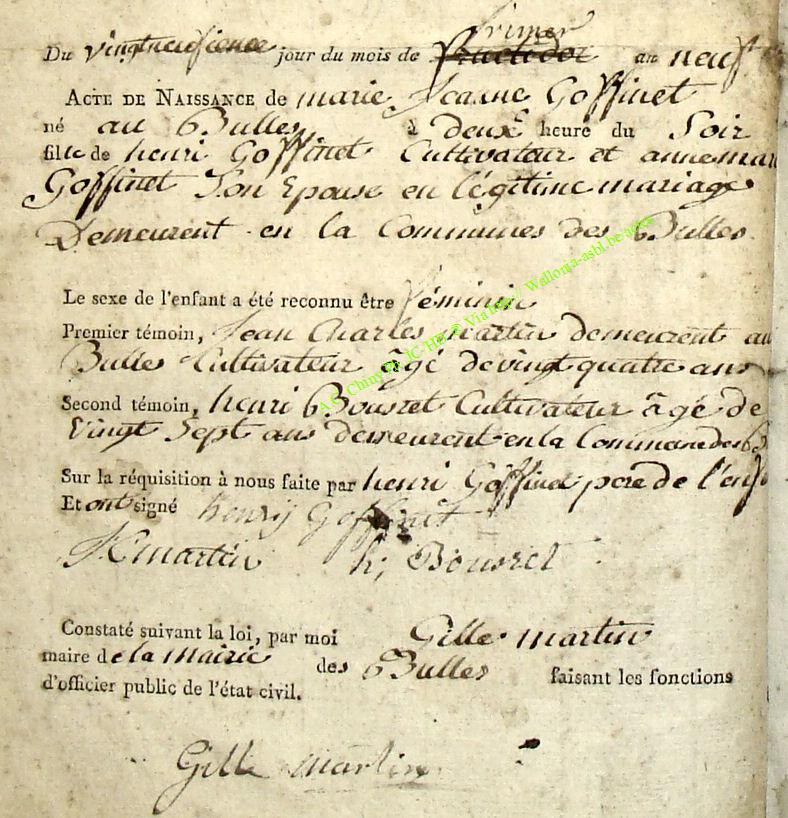 frimer
Du vingtneufieme jour du mois de fructidor an neuf
ACTE DE NAISSANCE de marie Jeanne Goffinet
né au Bulles à deux heure du Soir
fille de henri Goffinet Cultivateur et anne mari
Goffinet Son Epouse en légitime mariage
Demeurent en la Communes des Bulles
Le sexe de l'enfant a été reconnu être féminin
Premier témoin, Jean Charles martin demeurent au
Bulle Cultivateur âgé de vingt quatre ans
Second témoin, henri Bousret Cultivateur âgé de
Vingt Sept ans demeurent en la Commune des B
Sur la réquisition à nous faite par henri Goffinet pere de l'enf
Et ont signé henry Goffinet
JC martin h; Bousret
Constaté suivant la loi, par moi Gille martin
maire de la mairie des Bulles faisant les fonctions
d'officier public de l'état civil.
Gille martin